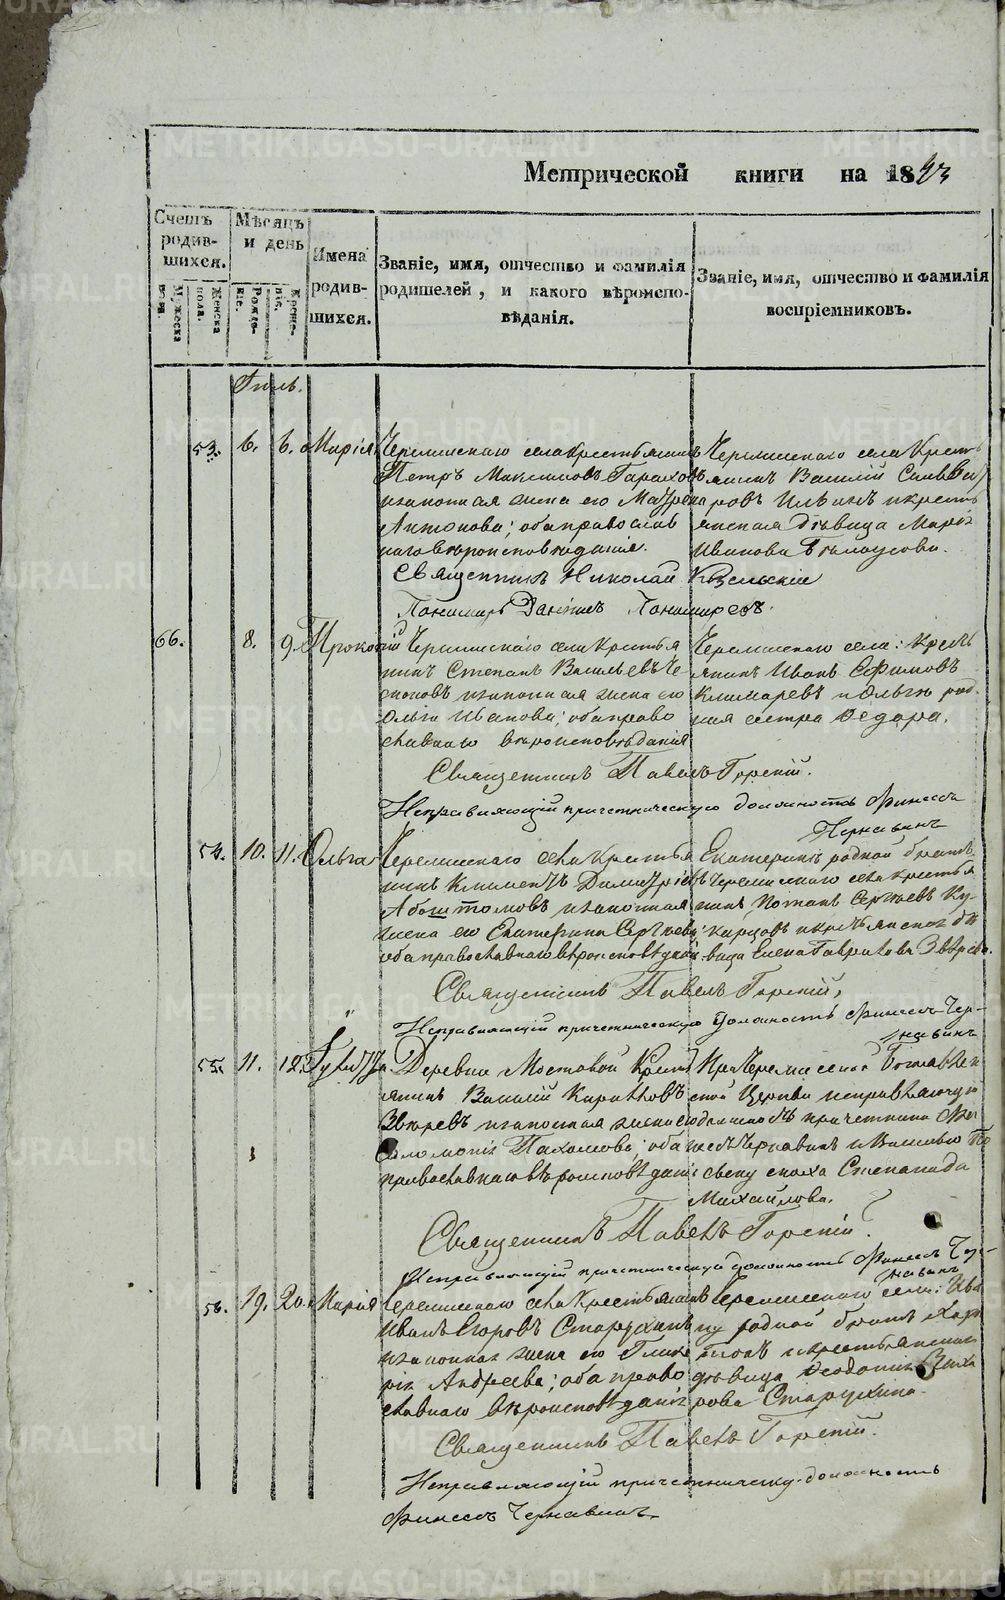 Метрической книги на 1843
Счетъ родив-шихся.
Мужеска пола.
Женска пола.
Мѣсяцъ и день
Рожде-нія.
Креще-нія.
Имена родив-шихся.
Званіе, имя, отчество и фамилія
родителей, и какого вѣроиспо-
вѣданія.
Званіе, имя, отчество и фамилія
воспріемниковъ.
Іюль.
53. 6. 6. Марія
Черемисскаго села крестьянинъ
Петръ Максимовъ
и законная жена его Мавра
Антонова; оба православ
наго вѣроисповѣданія.
Черемисскаго села кресть
янинъ Василій
ровъ Ильинъ и кресть
янская дѣвица Марія
Иванова Бѣлоусова.
Священникъ Николай
Пономарь Даніилъ Пономаревъ.
66. 8. 9. Прокопій
Черемисскаго села крестья
нинъ Степанъ Васильевъ Че
сноковъ и законная жена его
Ольга Иванова; оба право
славнаго вѣроисповѣданія
Черемисскаго села: кресть
янинъ Иванъ Ефимовъ
Климаревъ и Ольги род-
ная сестра Ѳедора.
Священникъ Павелъ Горскій.
Исправляющій причетническую должность Финеесъ
Чернавинъ
54. 10. 11. Ольга
Черемисскаго села крестья
нинъ Климентъ Димитріевъ
и законная
жена его Екатерина Сергѣева;
оба православнаго вѣроисповѣданія
Екатерины родной братъ
Черемисскаго села крестья
нинъ Потапъ Сергѣевъ Ку-
карцовъ и крестьянская дѣ
вица Елена Гаврилова Звѣрева.
Священникъ Павелъ Горскій.
Исправляющій причетническую должность Финеесъ Чер-
навинъ
55. 11. 12.
Деревни Мостовой Крест
янинъ Василій Карповъ
Звѣревъ и законная жена его
Соломонія Пахомова; оба
православнаго вѣроисповѣданія
При Черемисской Богоявлен
ской Церкви исправляющій
должность причетника Фи
неесъ Чернавинъ и Василью по
свему сноха Степанида
Михайлова.
Священникъ Павелъ Горскій
Исправляющій причетническую должность Финеесъ Чер-
навинъ
56. 19. 20. Марія
Черемисскаго села Крестьянинъ
Иванъ Егоровъ Старухинъ
и законная жена его Глике
рія Андреева; оба право
славнаго вѣроисповѣданія
Черемисскаго села: Ива
ну родной братъ Хари
тонъ и крестьянская
дѣвица Ѳеодосія Заха
рова Старухина.
Священникъ Павелъ Горскій.
Исправляющій причетническу. должность
Финеесъ Чернавинъ
METRIKI.GASO-URAL.RU